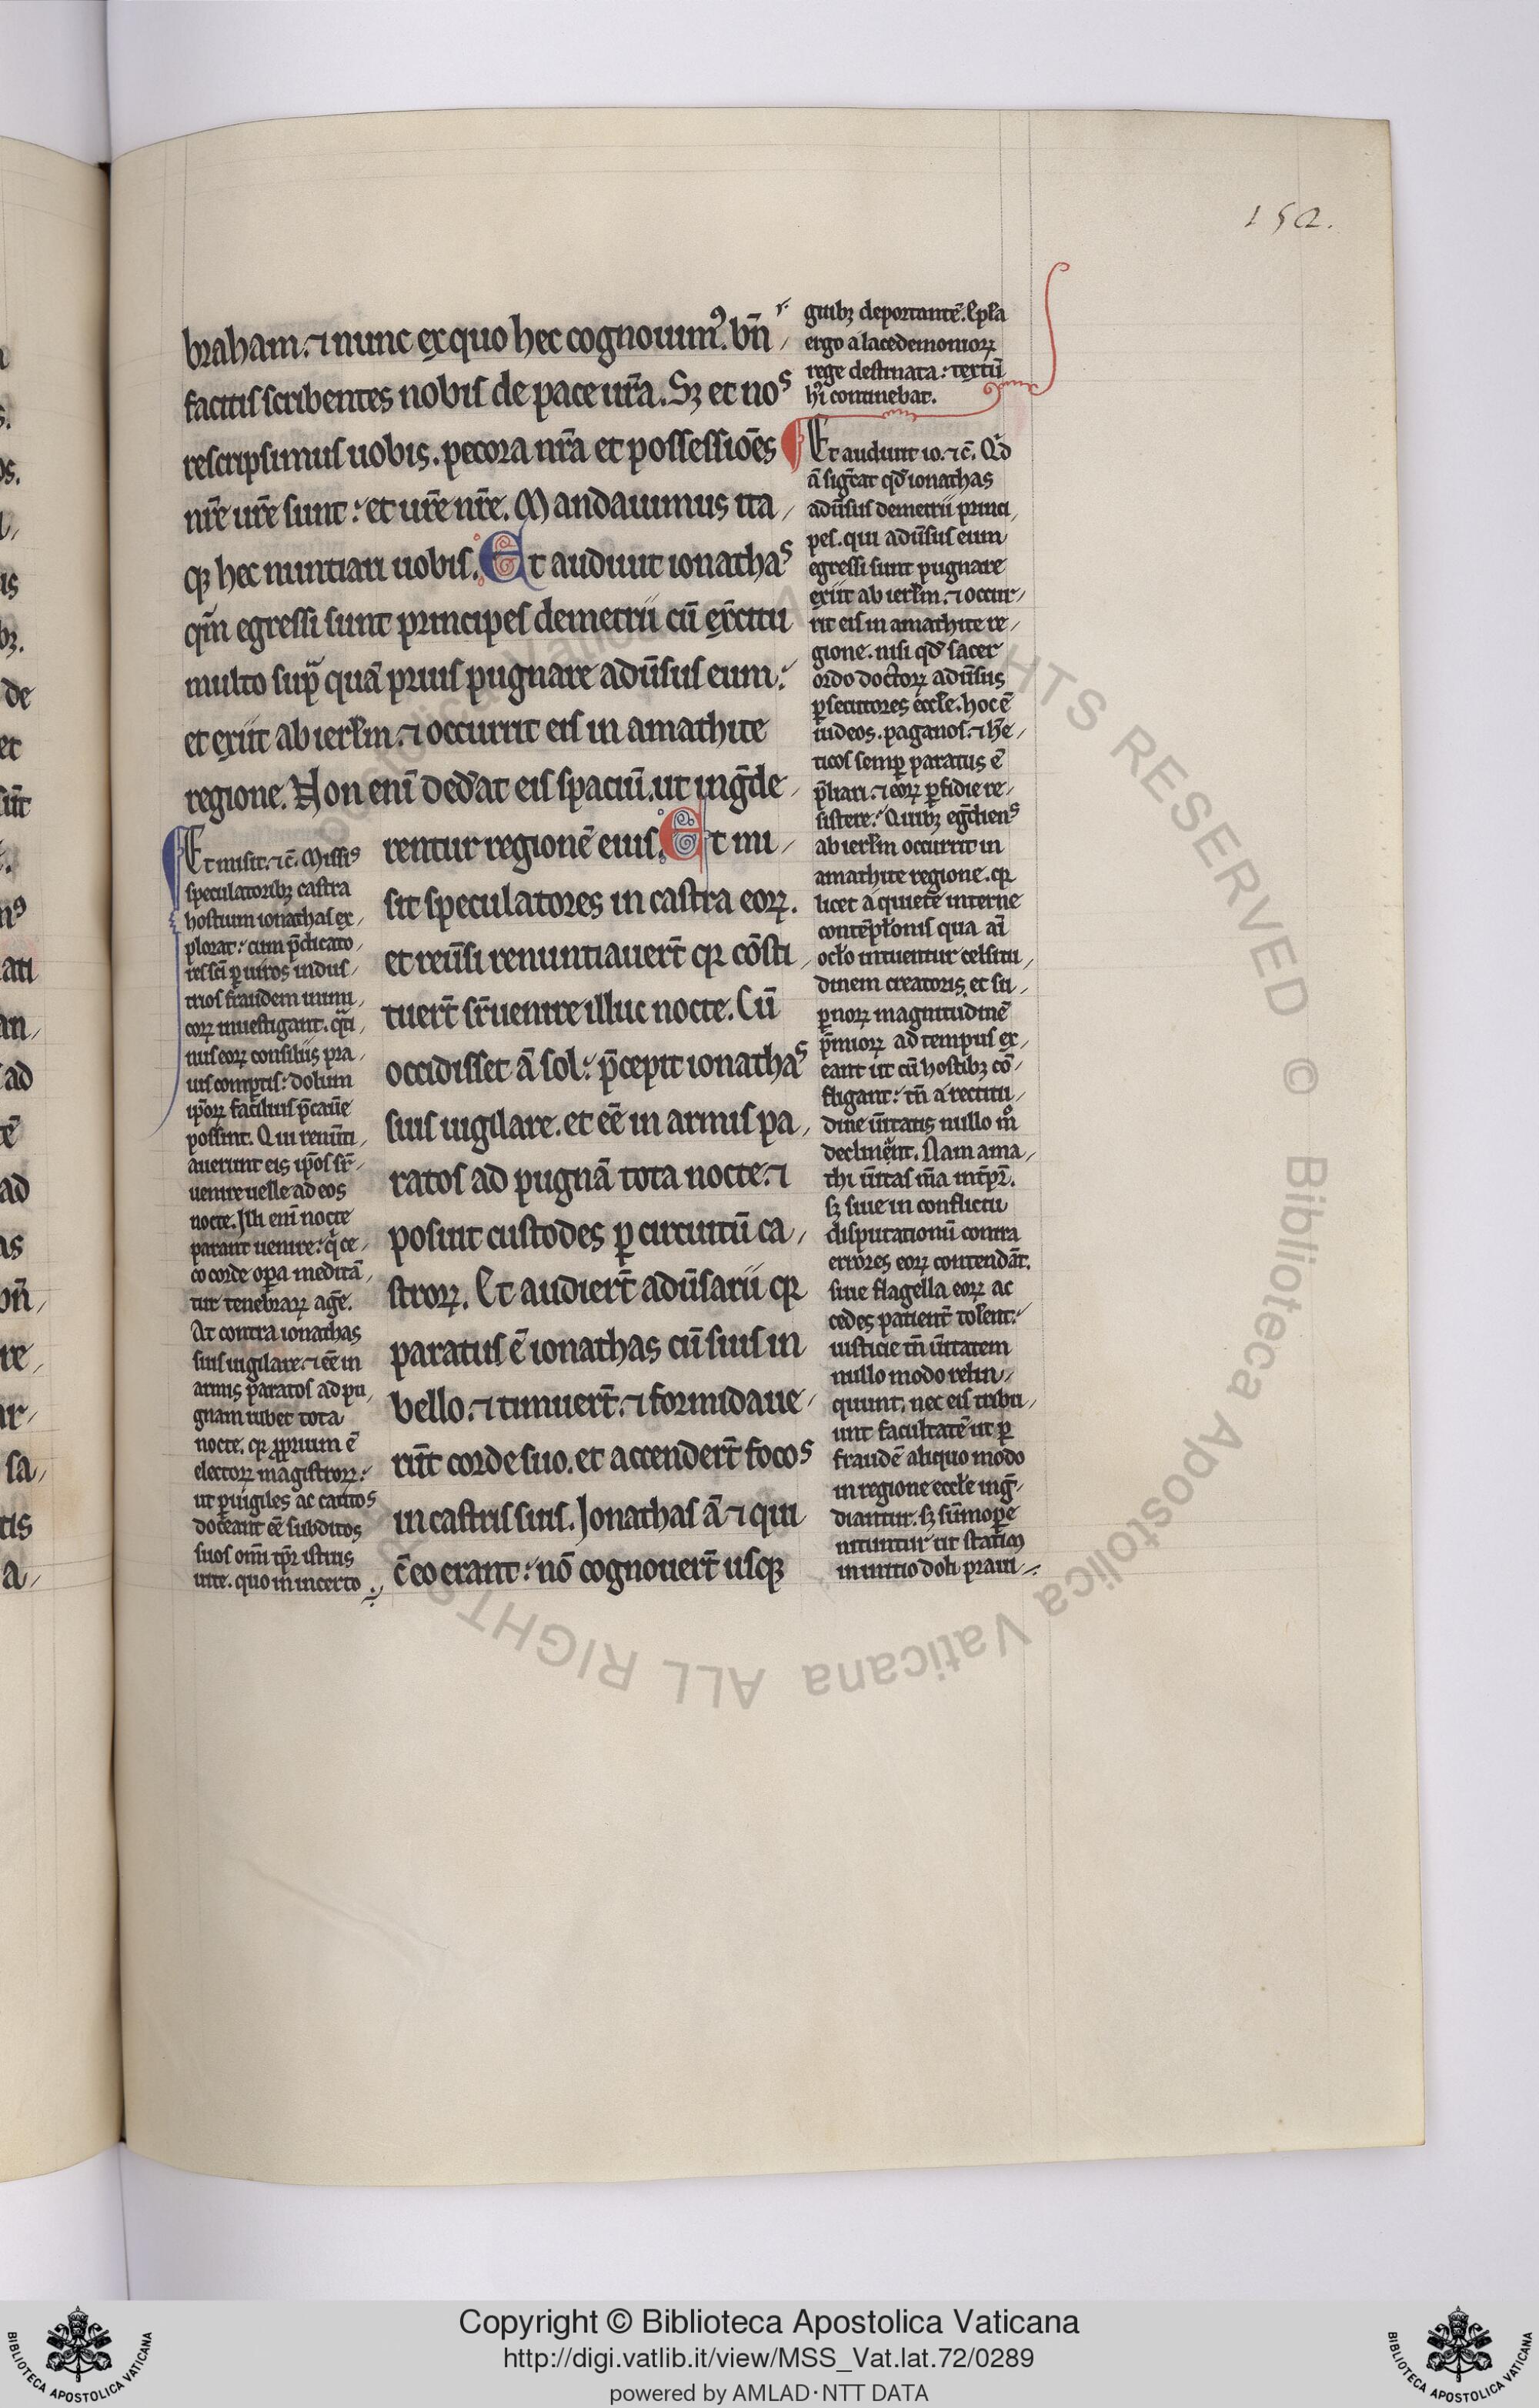 152.
braham. ⁊ nunc ex quo hec cognouim⁹. bn̄
facitis scribentes nobis de pace ur̄a. Sꝫ et nos
rescripsimus uobis. pecora nr̄a et possessiōes
nr̄e ur̄e sunt: et ur̄e nr̄e. Mandauimus ita
qꝫ hec nuntiari uobis. Et audiuit ionathas
qm̄ egressi sunt principes demetrii cū ex̄citu
multo sup̄ quā prius pugnare adūsus eum:
et exiit ab ierl̄m. ⁊ occurrit eis in amathite
regione. Non enī ded̄at eis spaciū. ut inḡde
rentur regionē eius. Et mi
sit speculatores in castra eoꝝ.
et reūsi renuntiauert̄ qꝛ cōsti
tuert̄ sr̄uenire illuc nocte. Cū
occidisset ā sol: p̄cepit ionathas
suis uigilare. et eē in armis pa
ratos ad pugnā tota nocte. ⁊
posuit custodes ꝑ circuitū ca
stroꝝ. Et audiert̄ adūsarii qꝛ
paratus ē ionathas cū suis in
bello. ⁊ timuert̄. ⁊ formidaue
rūt corde suo. et accendert̄ focos
in castris suis. Jonathas ā ⁊ qui
c̄ eo erant: nō cognouert̄ usqꝫ
Et misit. ⁊ c̄. Missis
speculatoribꝫ castra
hostium ionathas ex
plorat: cum p̄dicato
res sc̄i ꝑ uiros indus
trios fraudem inimi
coꝝ inuestigant. q̄ti
nus eoꝝ consiliis pra
uis comptis: dolum
ip̄oꝝ facilius p̄cauē
possint. Qui renūti
auerunt eis ip̄os sr̄
uenire uelle ad eos
nocte. Illi enī nocte
parant uenire: q̄ ce
co corde oꝑa meditā
tur tenebraꝝ aḡe.
At contra ionathas
suis uigilare. ⁊ eē in
armis paratos ad pu
gnam iubet tota
nocte. qꝛ ꝓprium ē
electoꝝ magistroꝝ:
ut ꝑuigiles ac cautos
doceant eē subditos
suos omī tp̄r istius
uite. quo in incerto
guibꝫ deportantē. Epl̄a
ergo a lacedemonioꝝ
rege destinata: textū
hc̄ continebat.
Et audiuit io. ⁊ c̄. Qd
ā sigc̄at qd̄ ionathas
adūsus demetrii princi
pes. qui adūsus eum
egressi sunt pugnare
exiit ab ierl̄m. ⁊ occur
rit eis in amathite re
gione. nisi qd̄ sacer
ordo doctoꝝ adūsus
ꝑsecutores eccl̄e. hoc ē
iudeos. paganos. ⁊ h̄e
ticos semꝑ paratus ē
p̄liari. ⁊ eoꝝ ꝑfidie re
sistere: Quibꝫ eḡdiens
ab ierl̄m occurrit in
amathite regione. qꝛ
licet a quiete interne
contēpl̄onis qua aī
ocl̄o intuentur celsitu
dinem creatoris. et su
ꝑnoꝝ magnitudinē
p̄mioꝝ ad tempus ex
eant ut cū hostibꝫ cō
fligant: tn̄ a rectitu
dine ūitatis nullo mº
declinent. Nam ama
thi ūitas m̄a int̄pr̄.
sꝫ siue in conflictu
disputationū contra
errores eoꝝ contendāt.
siue flagella eoꝝ ac
cedes patient̄ tol̄ent:
iusticie tn̄ ūitatem
nullo modo relin
quunt. nec eis tribu
unt facultatē ut ꝑ
fraudē aliquo modo
in regione eccl̄e inḡ
diantur. sꝫ sūmoꝑe
nituntur ut statim
in initio doli praui
Copyright © Biblioteca Apostolica Vaticana
http://digi.vatlib.it/view/MSS_Vat.lat.72/0289
powered by AMLAD·NTT DATA
BIBLIOTECA APOSTOLICA VATICANA
BIBLIOTECA APOSTOLICA VATICANA